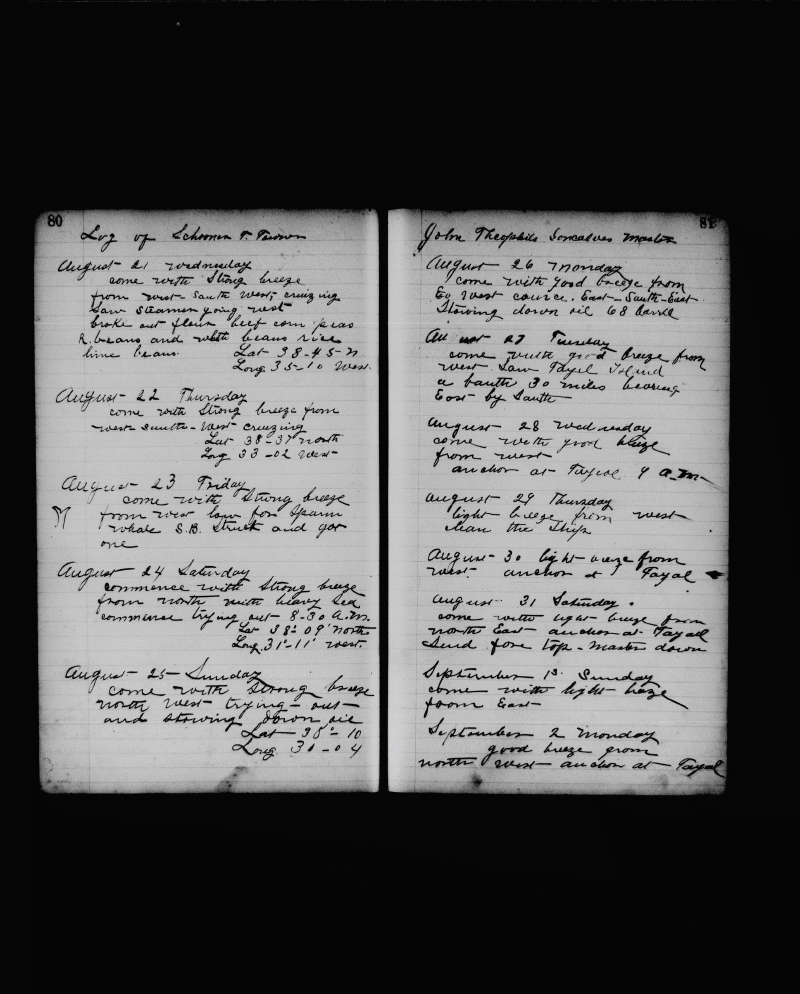 80
Log of Schooner T. Towner
August 21 wednesday
come with Strong breeze
from west South West, cruizing
Saw Steamer going west
broke out flour beef corn peas
R. beans and with beans rice
lime beans. Lat 38-45-N
Long 35-10 West.
August 22 Thursday
come with Strong breeze from
west-South-West cruizing
Lat 38-37 north
Long 33-02 West
August 23 Friday
come with Strong breeze
from west low for Sparm
whale S.B. Struck and got
one
August 24 Saturday
commence with Strong breeze
from north with heavy Sea
commence trying out 8-30 A.M.
Lat 38° 09' north
Long. 31°-11' west.
August 25 Sunday
come with Strong breeze
north West trying-out
and stowing down oil
Lat 38°-10
Long 31-04
81
John Theophilo Goncalves master
August 26 monday
come with good breeze from
west cource. East-South-East
Stowing down oil 68 barrel
August 27 Tuesday
come with good breeze from
west Saw Fayal Island
a bauth 30 miles bearing
East by South
August 28 Wednesday
come with good breeze
from west
anchor at Fayal 9 A.M.
August 29 Thursday
light breeze from west
clean the Ship
August 30 light breeze from
west anchor at Fayal
August 31 Saturday.
come with light breeze from
north East anchor at Fayall
Send fore top-master down
September 1st Sunday
come with light breeze
from East
September 2 monday
good breeze from
north west anchor at Fayal